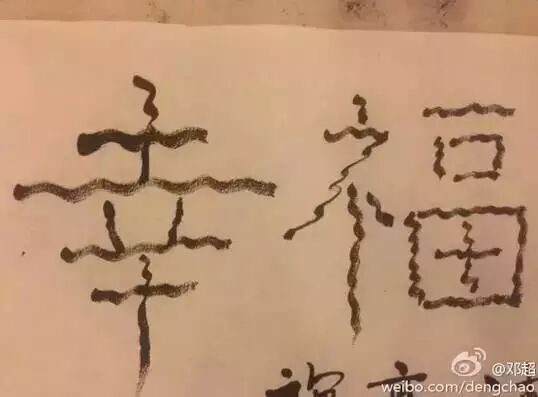 幸福
@邓超
weibo.com/dengchao